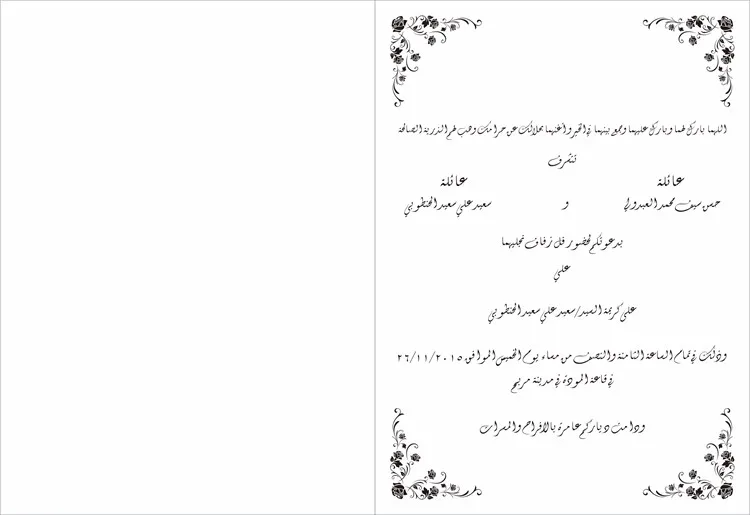 اللهما بارك لهما وبارك عليهما وجمع بينهما في الخير وأغنهما بحلالك عن حرامك وهب لهم الذرية الصالحة
تتشرف
عائلة عائلة
حسن سيف محمد العبدولي و سعيد علي سعيد الحنطوبي
بدعوتكم لحضور فل زفاف نجليهما
علي
على كريمة السيد/سعيد علي سعيد الحنطوبي
وذلك في تمام الساعة الثامنة والنصف من مساء يوم الخميس الموافق ٢٦/١١/٢٠١٥
في قاعة المودة في مدينة مربح
ودامت دياركم عامرة بالافراح والمسرات